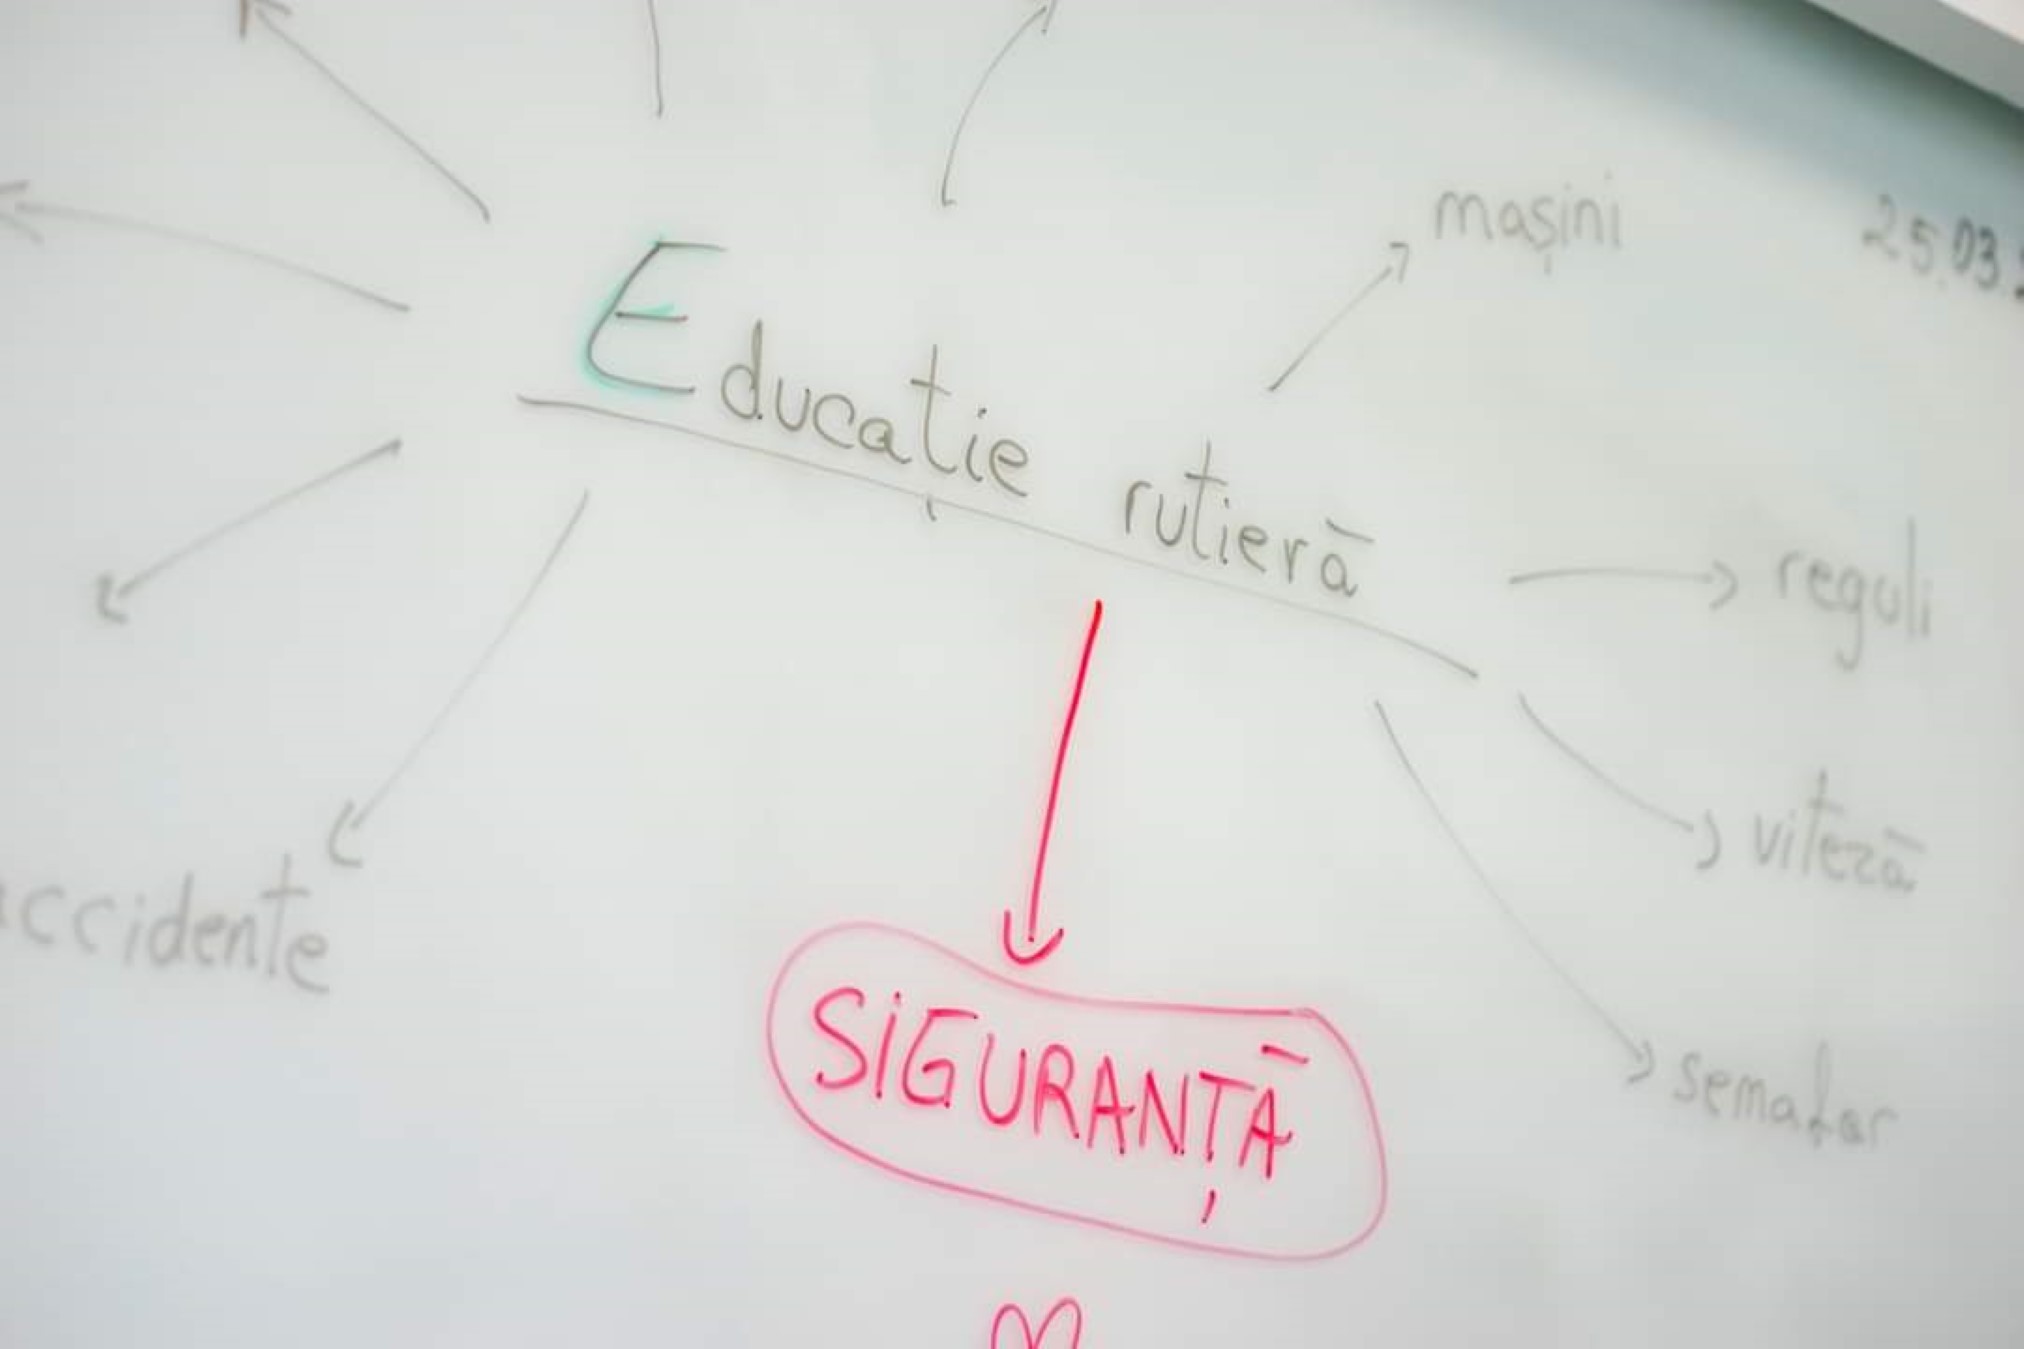 mașini
25.03.
Educație rutieră
reguli
viteză
accidente
SIGURANȚĂ
semafor